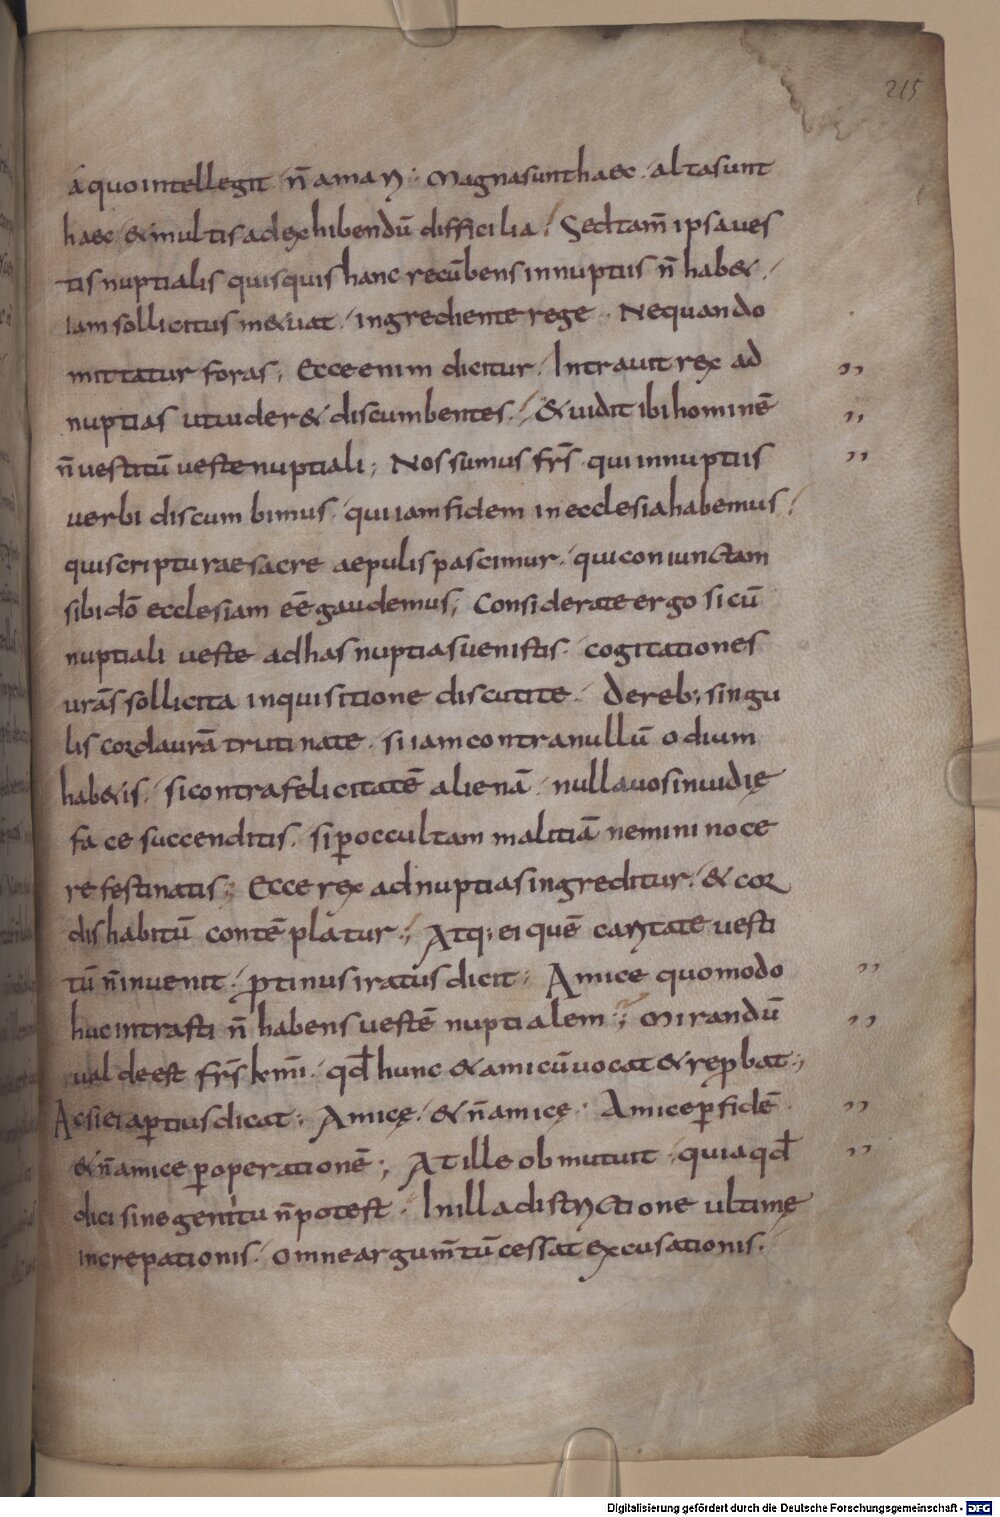 215
a quo intellegit n̄ amari. Magna sunt haec. alta sunt
haec & multis ad exhibendū difficilia. Sed tam̄ ipsa ues
tis nuptialis quisquis hanc recūbens in nuptiis n̄ hab&.
Iam sollicitus metuat. ingrediente rege. Ne quando
mittatur foras; Ecce enim dicitur. Intrauit rex ad ,,
nuptias ut uider& discumbentes. & uidit ibi hominē ,,
n̄ uestitū ueste nuptiali; Nos sumus fr̄s qui in nuptiis ,,
uerbi discumbimus. qui iam fidem in ecclesia habemus.
qui scripturae sacre aepulis pascimur. qui coniunctam
sibi dō ecclesiam eē gaudemus; Considerate ergo si cū
nuptiali ueste ad has nuptias uenistis. cogitationes
urās sollicita inquisitione discutite. De reb; singu
lis corda urā trutinate. si iam contra nullū odium
hab&is. si contra felicitatē alienā. nulla uos inuidię
face succenditis. si p̲ occultam malitiā nemini noce
re festinatis; Ecce rex ad nuptias ingreditur. & cor
dis habitū contēplatur; Atq; ei quē caritate uesti
tū n̄ inuenit. p̲tinus iratus dicit; Amice quomodo ,,
huc intrasti n̄ habens uestē nuptialem; Mirandū ,,
ualde est fr̄s km̄i. qđ hunc & amicū uocat & rep̲bat;
Ac si ei ap̲tius dicat; Amice. & n̄ amice. Amice p̲ fidē ,,
& n̄ amice p̲ operationē; At ille obmutuit. quia qđ ,,
dici sine gemitu n̄ potest. In illa districtione ultimę
increpationis. omne argum̄tū cessat excusationis.
Digitalisierung gefördert durch die Deutsche Forschungsgemeinschaft - DFG